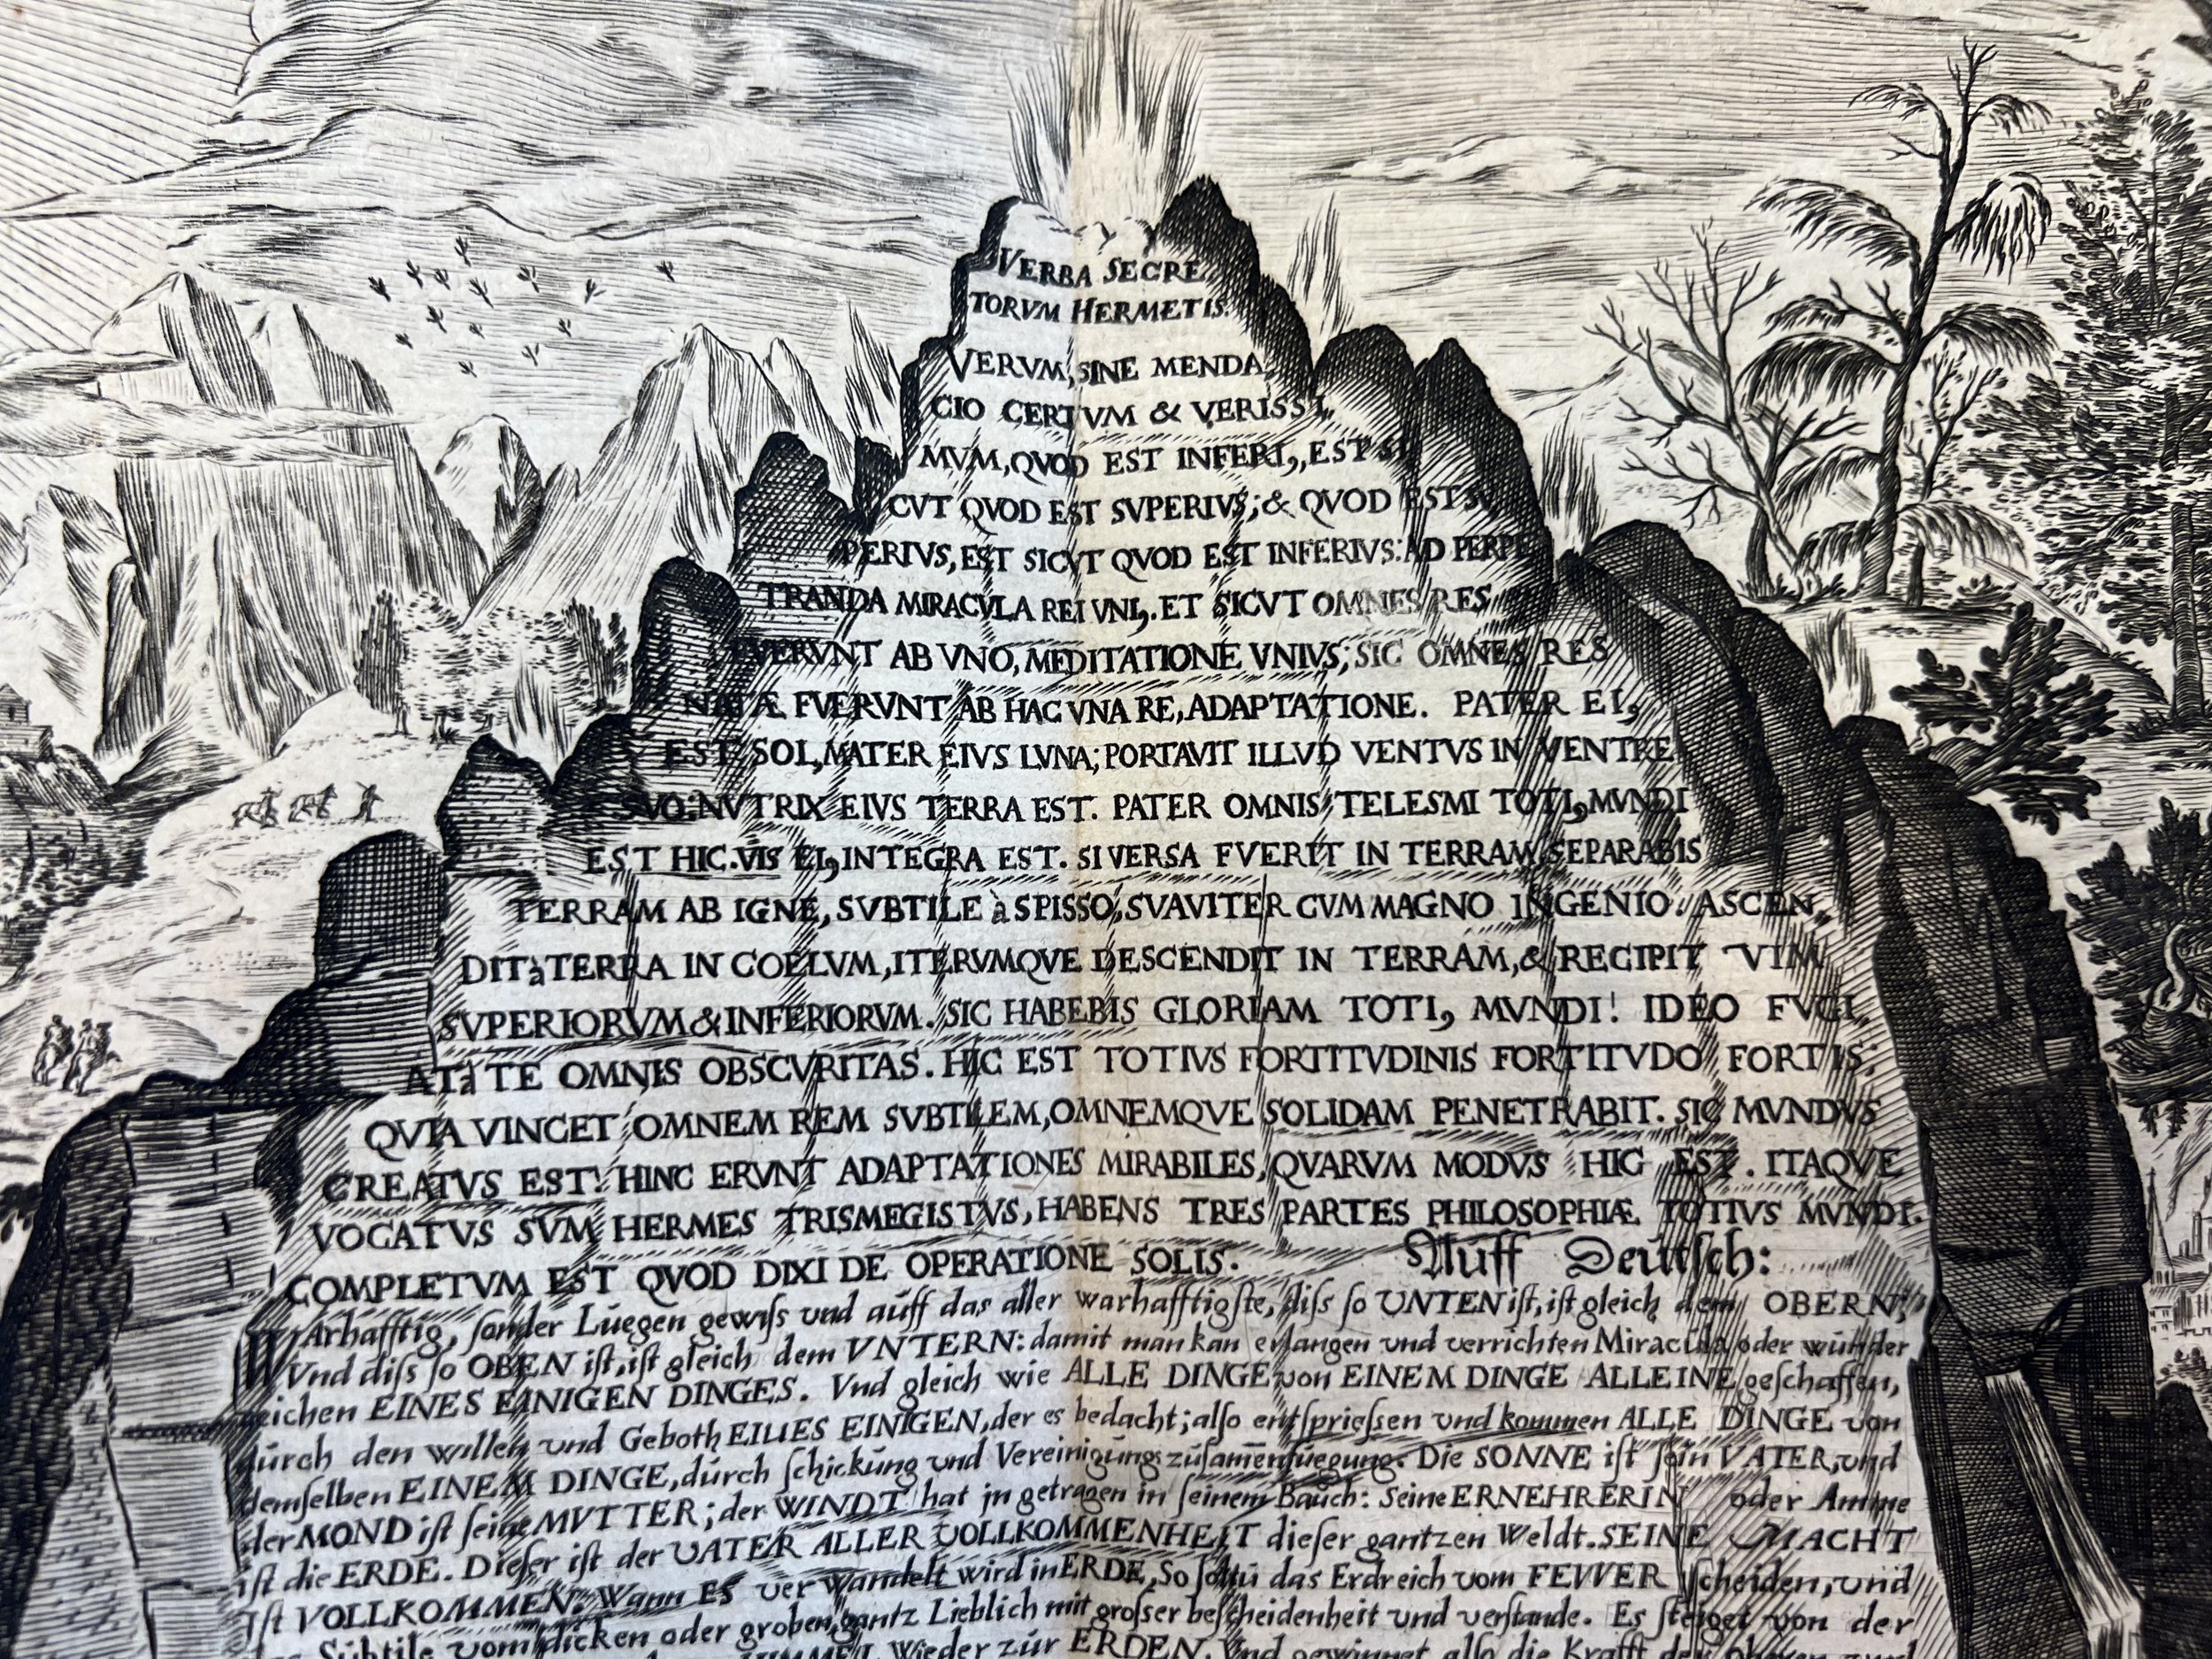 VERBA SECRE
TORVM HERMETIS.
VERVM, SINE MENDA,
CIO CERTVM & VERISSI,
MVM, QVOD EST INFERI9, EST SI
CVT QVOD EST SVPERIVS; & QVOD EST SV
PERIVS, EST SICVT QVOD EST INFERIVS: AD PERPE
TRANDA MIRACVLA REI VNI9. ET SICVT OMNES RES
FVERVNT AB VNO, MEDITATIONE VNIVS; SIC OMNES RES
NATÆ FVERVNT AB HAC VNA RE, ADAPTATIONE. PATER EI9
EST SOL, MATER EIVS LVNA; PORTAVIT ILLVD VENTVS IN VENTRE
SVO: NVTRIX EIVS TERRA EST. PATER OMNIS TELESMI TOTI9 MVNDI
EST HIC. VIS EI9 INTEGRA EST. SI VERSA FVERIT IN TERRAM, SEPARABIS
TERRAM AB IGNE, SVBTILE à SPISSO, SVAVITER CVM MAGNO INGENIO. ASCEN,
DIT à TERRA IN COELVM, ITERVMQVE DESCENDIT IN TERRAM, & RECIPIT VIM
SVPERIORVM & INFERIORVM. SIC HABEBIS GLORIAM TOTI9 MVNDI! IDEO FVGI,
AT à TE OMNIS OBSCVRITAS. HIC EST TOTIVS FORTITVDINIS FORTITVDO FORTIS;
QVIA VINCET OMNEM REM SVBTILEM, OMNEMQVE SOLIDAM PENETRABIT. SIC MVNDVS
CREATVS EST. HINC ERVNT ADAPTATIONES MIRABILES, QVARVM MODVS HIC EST. ITAQVE
VOCATVS SVM HERMES TRISMEGISTVS, HABENS TRES PARTES PHILOSOPHIÆ TOTIVS MVNDI.
COMPLETVM EST QVOD DIXI DE OPERATIONE SOLIS. Auff Deutsch:
WArhafftig, sonder Luegen gewiss und auff das aller warhafftigste, diss so UNTEN ist, ist gleich dem OBERN;
Vnd diss so OBEN ist, ist gleich dem VNTERN: damit man kan erlangen und verrichten Miracula oder wunder
zeichen EINES EINIGEN DINGES. Vnd gleich wie ALLE DINGE von EINEM DINGE ALLEINE geschaffen,
durch den willen und Geboth EINES EINIGEN, der es bedacht; also entspriessen und kommen ALLE DINGE von
demselben EINEM DINGE, durch schickung und Vereinigungs zusamenfuegung. Die SONNE ist sein VATER, und
der MOND ist seine MVTTER; der WINDT hat jn getragen in seinem Bauch: Seine ERNEHRERIN oder Amme
ist die ERDE. Dieser ist der VATER ALLER VOLLKOMMENHEIT dieser gantzen Weldt. SEINE MACHT
Ist VOLLKOMMEN: Wann ES verwandelt wird in ERDE, So soltu das Erdreich vom FEWER scheiden, und
Subtile vom dicken oder groben, gantz Lieblich mit grosser bescheidenheit und verstande. Es steiget von der
HIMMEL Wieder zur ERDEN, Und gewinnet also die Krafft der obern und